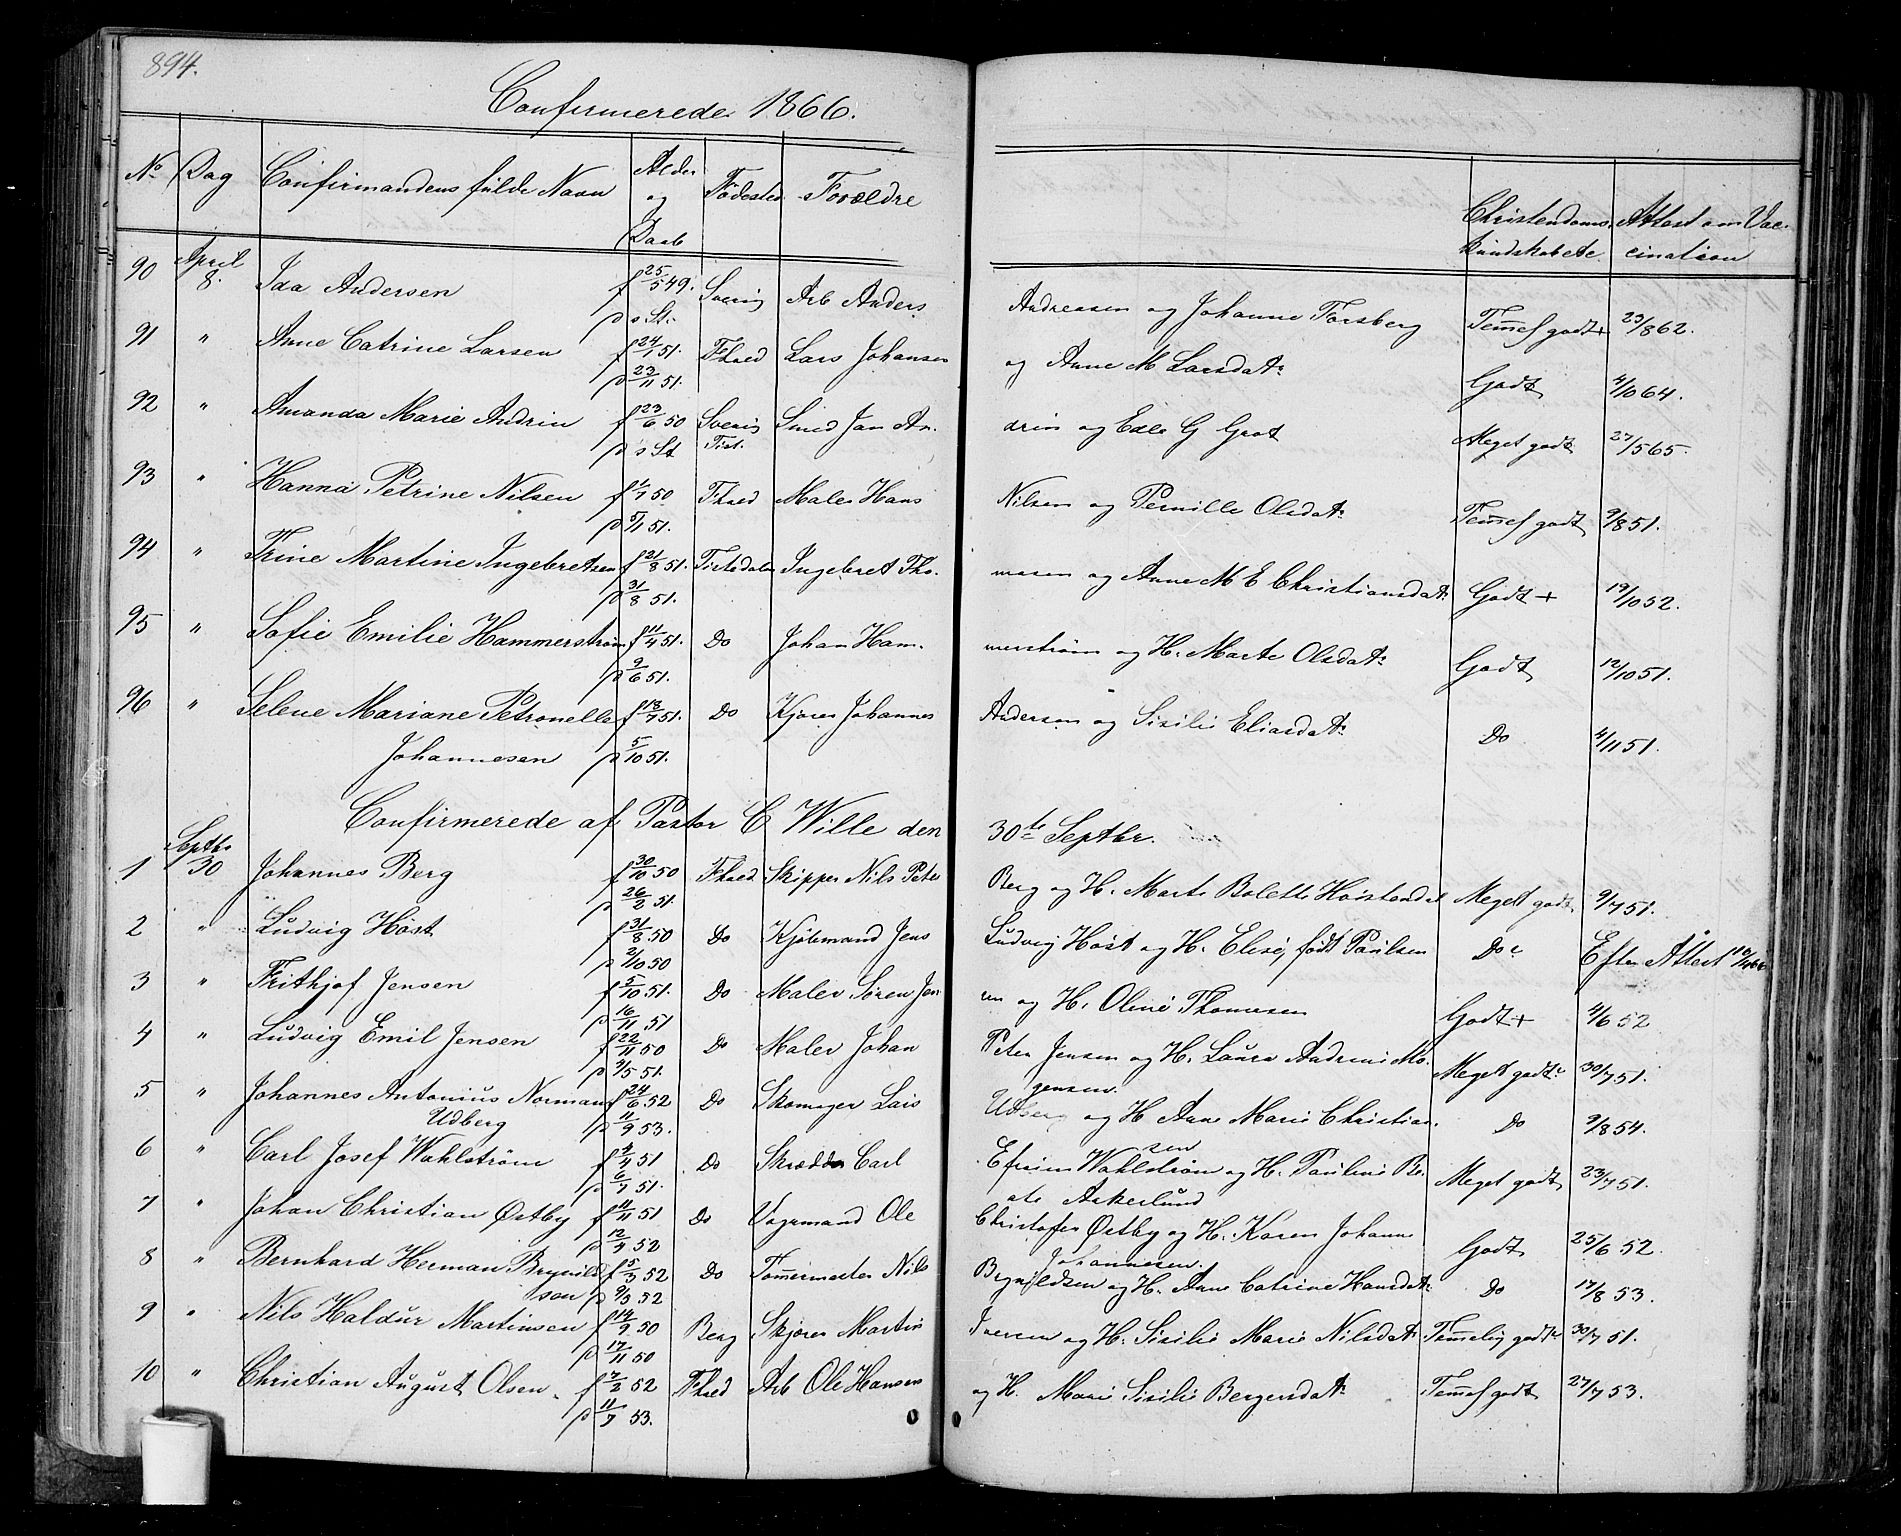 894.
Confirmerede 1866.
No Dag Confirmandens fulde Navn Alder og Daab Fødested Forældre Christendoms kundskaber Attest om Vaccination
90 April 8. Ida Andersen f 25/5 49. p s St. Sverig Arb Anders Andreasen og Johanne Forsberg Temmel godt + 23/8 62.
91 " Anne Catrine Larsen f 24/1 51. p 23/11 51. Fhald Lars Johansen og Anne M Larsdatr Godt 4/10 64.
92 " Amanda Marie Andrin f 23/6 50 p s St Sverig Tist. Smed Jan An- drin og Edle G Grot Meget godt 27/5 65.
93 " Hanna Petrine Nilsen f 1/7 50 p 5/11 51. Fhald Maler Hans Nilsen og Pernille Olsdatr Temmel godt 9/8 51.
94 " Trine Martine Ingebretsen f 21/8 51. p 31/8 51. Tistedalen Ingebret Tho- masen og Anne M E Christiansdatr Godt + 19/10 52.
95 " Sofie Emilie Hammerstrøm f 11/4 51. p 9/6 51. Do Johan Ham- merstrøm og H. Marte Olsdatr Godt 12/10 51.
96 " Selene Mariane Petronelle f 18/7 51. Do Kjører Johannes Andersen og Sisilie Eliasdatr Do 4/11 51.
Johannesen p 5/10 51.
Confirmerede af Pastor C Wille den 30te Septbr.
1 Septbr 30 Johannes Berg f 30/10 50 p 26/2 51. Fhald Skipper Nils Peter Berg og H. Marte Bolette Høistendal Meget godt 9/7 51.
2 " Ludvig Høst f 31/8 50 p 2/10 50 Do Kjøbmand Jens Ludvig Høst og H. Elise, født Paulsen Do Efter Attest
3 " Frithjof Jensen f 5/10 51. p 16/11 51 Do Maler Søren Jen- sen og H. Oline Thomesen Godt + 4/6 52
4 " Ludvig Emil Jensen f 22/11 50 p 4/5 51. Do Maler Johan Peter Jensen og H. Laura Andrine Mo- gensen. Meget godt 30/7 51.
5 " Johannes Antonius Norman Udberg f 24/6 52 p 11/9 53. Do Skomager Lars Udberg og H Anne Marie Christian- sen Do 9/8 54.
6 " Carl Josef Wahlstrøm f 4/4 51 p 6/7 51. Do Skrædder Carl Efraim Wahlstrøm og H. Pauline Be- ate Askerlund Meget godt 23/7 51.
7 " Johan Christian Østby f 11/11 51 p 12/4 52 Do Vognmand Ole Christofer Østby og H. Karen Johanne Johannesen. Godt 25/6 52.
8 " Bernhard Herman Brynild- sen f 5/3 52 p 9/5 52 Do Tømmermester Nils Brynildsen og H. Anne Catrine Hansdatr Do 17/8 53.
9 " Nils Haldur Martinsen f 14/9 50 p 17/11 50 Berg Skjører Martin Iversen og H. Sisilie Marie Nilsdatr Temmelig godt 30/7 51.
10 " Christian August Olsen. f 7/2 52 p 11/7 53. Fhald Arb Ole Hansen og H. Marie Sisilie Bergersdatr Temmel godt 27/7 53.